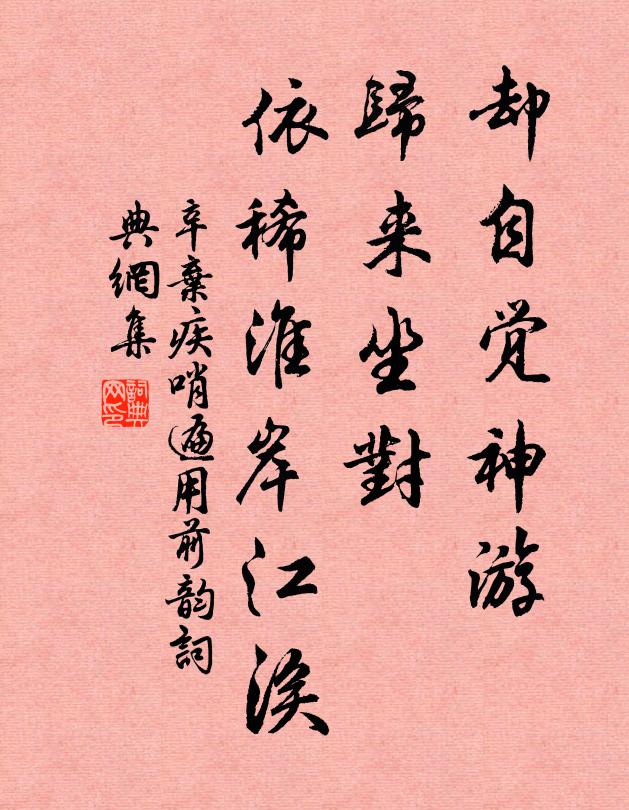 却自觉神游
歸来坐對
依稀淮岸江涘
辛棄疾哨遍用前韵詞
典網集
詞典网印